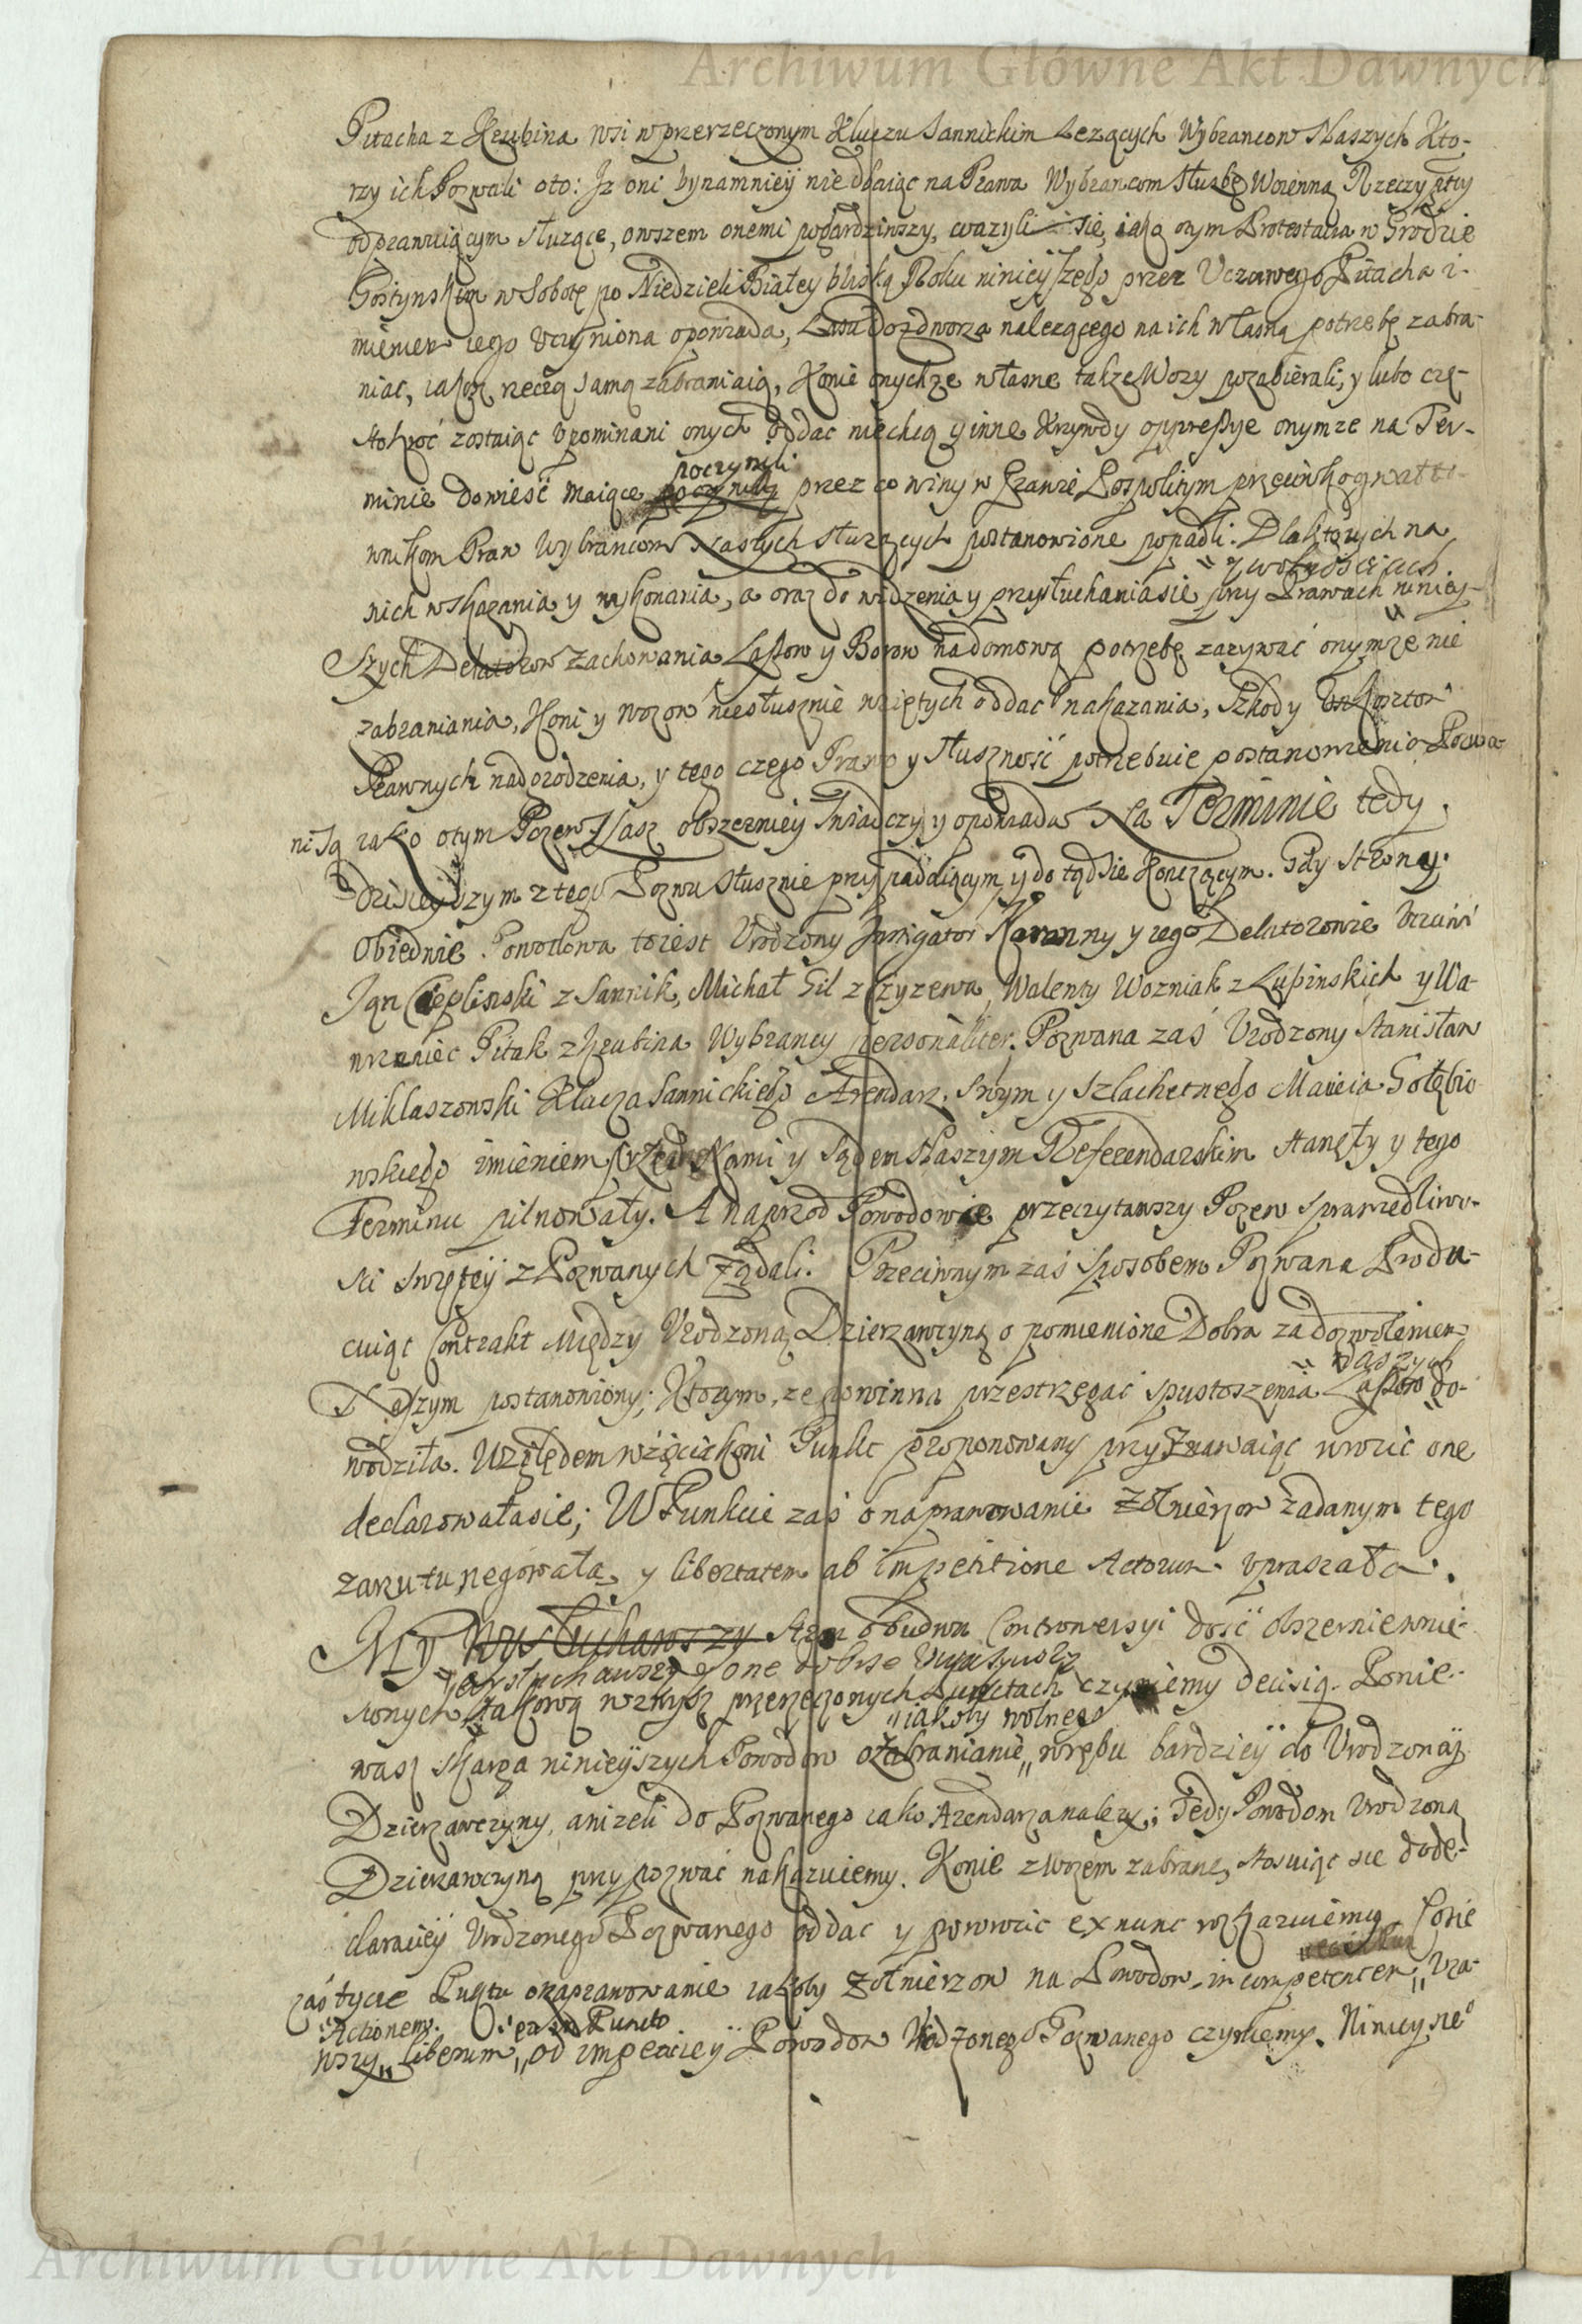 Archiwum Główne Akt Dawnych
Pitacha z Krubina wsi w przerzeczonym Kluczu Sannickim Lezących Wybrancow Naszych Kto-
rzy ich Pozwali oto: Iz oni bynamnieÿ nie dbaiąc na Prawa Wybrancom Służbę Woienną Rzeczy
odprawuiącym służące, owszem onemi wzgardziwszy, ważyli się, iako otym Protestacia w Grodzie
Gostynskim w Sobotę po Niedzieli Białey bliską Roku ninieyszego przez Uczciwego Pitacha i-
mieniem iego uczyniona opowiada, Lasu do zdworza nalezącego na ich własną potrzebę zabra-
niac, iakoz rzeczą samą zabraniaią, Konie onychze własne takze Wozy pozabierali, y lubo czę-
stokroć zostaiąc upominani onych oddac niechcą y inne Krzywdy oppressye onymze na Ter-
poczynili
minie dowieść maiące poczynili przez co winy w Prawie Pospolitym przeciwko gwałto-
wnikom Praw Wybrancom Naszych służących postanowione popadli. Dla ktorych na
y wolnosciach
nich wskazania y wykonania, a oraz do widzenia y przysłuchania sie przy Prawach niniey-
szych Delatorow zachowania Lassow y Borow na domową potrzebę zazywać onymze nie
zabraniania, Koni y wozow niesłusznie wziętych oddac nakazania, Szkody Kosztow
Prawnych nadgrodzenia, y tego czego Prawo y Słuszność potrzebuie postanowienia Pozwa-
ni są iako otym Pozew Nasz obszerniey Swiadczy y opowiada Na Terminie tedy
dzisieyszym z tego Pozwu Słusznie przypadaiącym y dotąd sie Konczącym. Gdy Strony
Obiedwie. Powodowa toiest Urodzony Instigator Koronny y iego Delatorowie Uczciwi
Jan Cieplinski z Sannik, Michał Gil z Czyzewa, Walenty Wozniak z Lupinskich y Wa-
wrzeniec Pitak z Krubina Wybrancy personaliter. Pozwana zaś Urodzony Stanisław
Miklaszowski Klucza Sannickiego Arendarz. Swym y Szlachetnego Macieia Gołębio-
wskiego imieniem przed Nami y Sądem Naszym Referendarskim stanęły y tego
Terminu pilnowały. A naprzod Powodowie przeczytawszy Pozew Sprawiedliwo-
sci Swiętey z Pozwanych Ządali. Przeciwnym zaś Sposobem Pozwana Produ-
cuiąc Contrakt między Urodzoną Dzierzawczyną o pomienione Dobra za dozwoleniem
naszych
Naszym postanowiony, Ktorym, ze powinna przestrzegać spustoszenia Lassow do-
wodziła. Względem wzięcia koni Punkt proponowany przyznawaiąc wrocic one
declarowała sie; W Punkcie zaś o naprawowanie Zołnierzow zadanym tego
zarzutu negowała y libertatem ab impetitione Actorum upraszała.
My Wysłuchawszy Stron obudwu Controwersyi dość obszernie wnie-
wysłuchawszy y one dobrze uwazywszy
sionych takową wzwysz przerzeczonych Punctach czyniemy decisią. Ponie-
iakoby wolnego
wasz skarga ninieÿszych Powodow o zabranianie wrębu bardzieÿ do Urodzonaÿ
Dzierzawczyny, anizeli do Pozwanego iako Arendarza nalezy; Tedy Powodom Urodzoną
Dzierzawczyną przypozwać nakazuiemy. Konie z wozem zabrane, stosuiąc sie do de-
claracieÿ Urodzonego Pozwanego oddac y powrocic ex nunc rozkazuiemy Co sie
zaś tycze Puktu o naprawowanie iakoby Zołnierzow na Powodow incompetencem Uzna-
Actionem. Puncto
wszy liberum od impeticieÿ Powodow Urodzonego Pozwanego czyniemy. Ninieysze
Archiwum Główne Akt Dawnych